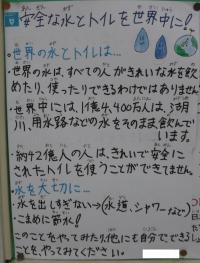 安全な水とトイレを世界中に!
・世界の水とトイレは…
・世界の水は、すべての人がきれいな水を飲
めたり、使ったりできるわけではありません
・世界中には、1億4,400万人は、湖
川、用水路などの水をそのまま、飲んで
います。
・約 億人の人は、きれいで安全に
されたトイレを使うことができてません。
・水を大切に…
・水を出しすぎない→(水道、シャワーなど)
・こまめに節水!
このことをやってみたり他にも自分でできる
ことを、やってみてください。